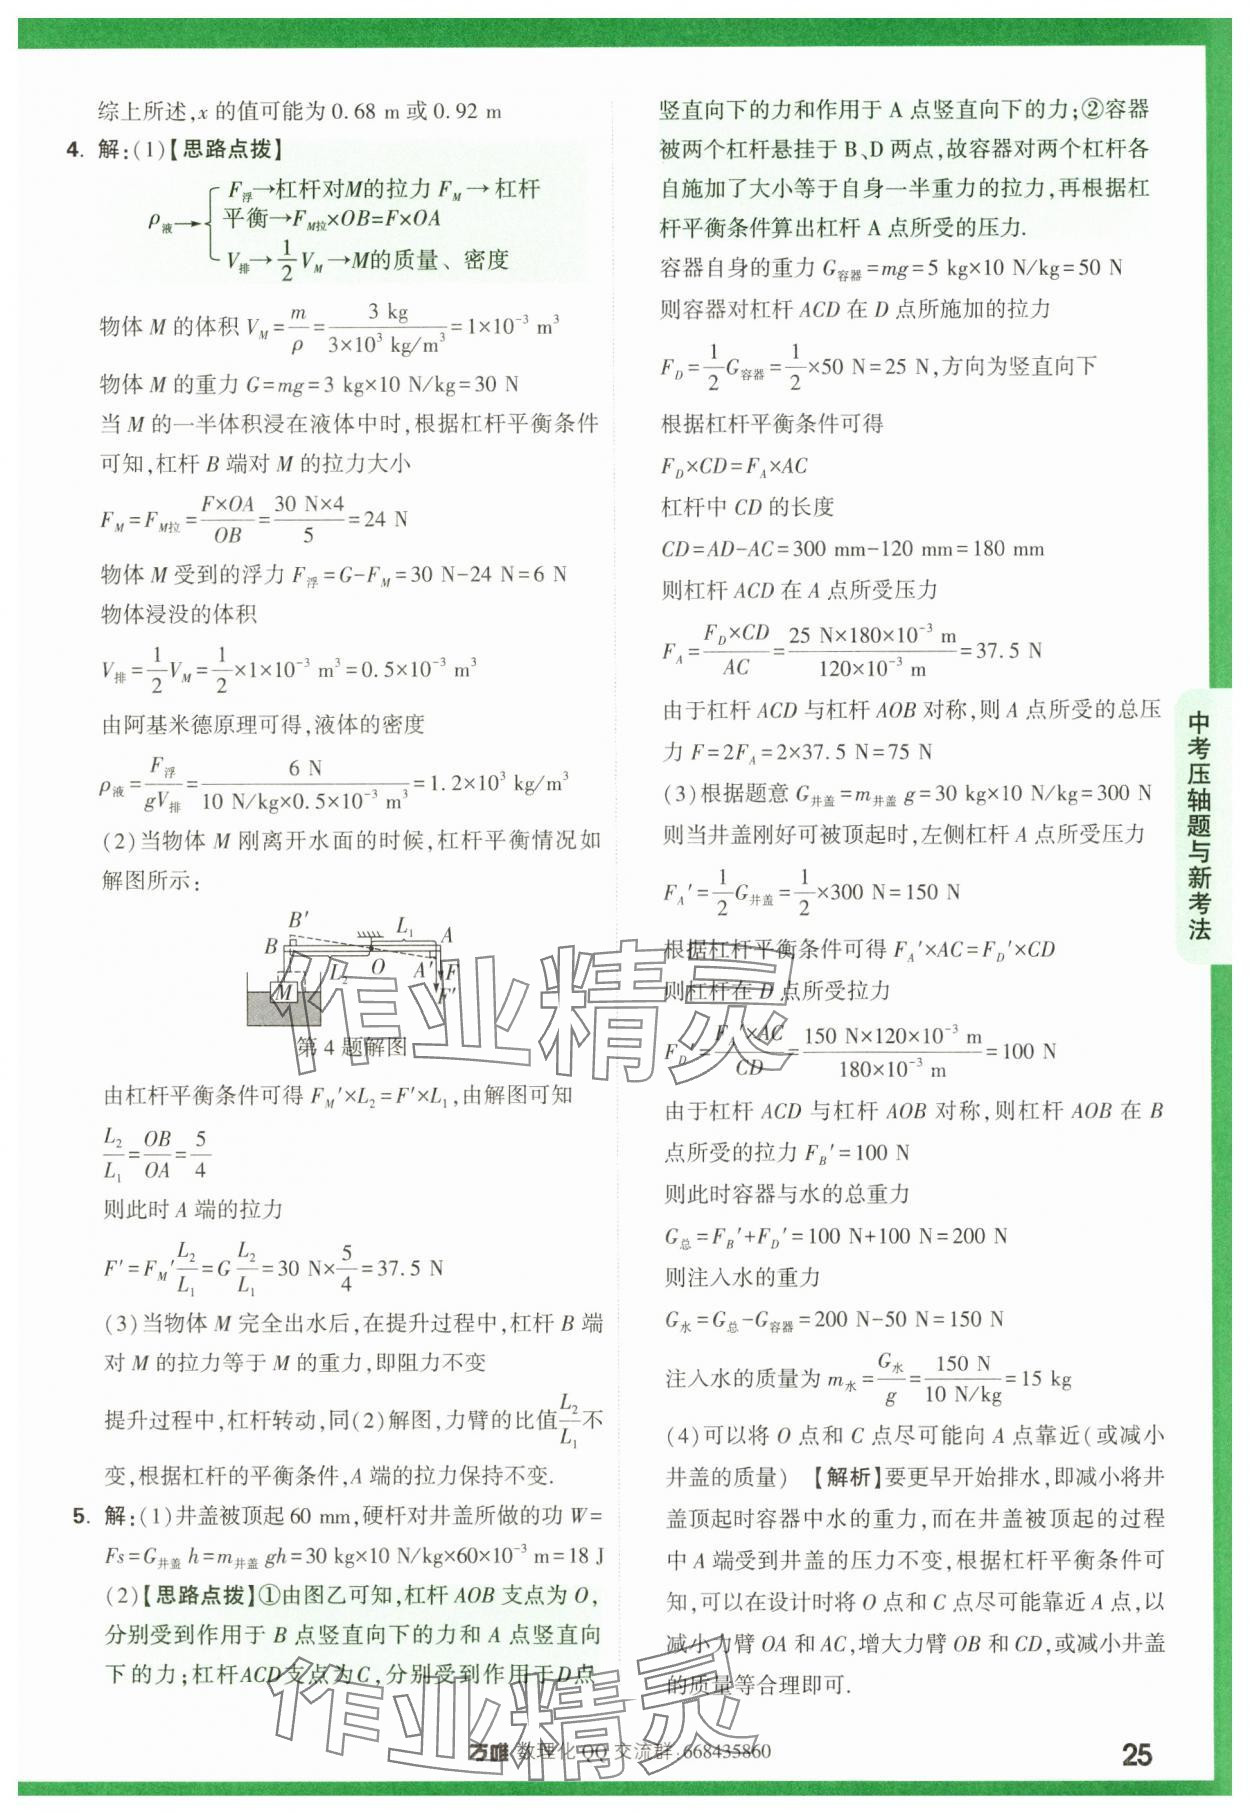 综上所述,x 的值可能为 0.68 m 或 0.92 m
4. 解:(1)【思路点拨】
ρ液→{ F浮→杠杆对M的拉力 F_M→杠杆
平衡→F_M拉×OB=F×OA
V排→1/2 V_M→M的质量、密度
物体 M 的体积 V_M=m/ρ=3 kg/(3×10³ kg/m³)=1×10⁻³ m³
物体 M 的重力 G=mg=3 kg×10 N/kg=30 N
当 M 的一半体积浸在液体中时,根据杠杆平衡条件
可知,杠杆 B 端对 M 的拉力大小
F_M=F_M拉=F×OA/OB=30 N×4/5=24 N
物体 M 受到的浮力 F浮=G-F_M=30 N-24 N=6 N
物体浸没的体积
V排=1/2 V_M=1/2×1×10⁻³ m³=0.5×10⁻³ m³
由阿基米德原理可得,液体的密度
ρ液=F浮/(gV排)=6 N/(10 N/kg×0.5×10⁻³ m³)=1.2×10³ kg/m³
(2)当物体 M 刚离开水面的时候,杠杆平衡情况如
解图所示:
B′ L₁ A
B O A′ F
L₂ F′
M
第 4 题解图
由杠杆平衡条件可得 F_M′×L₂=F′×L₁,由解图可知
L₂/L₁=OB/OA=5/4
则此时 A 端的拉力
F′=F_M′L₂/L₁=G L₂/L₁=30 N×5/4=37.5 N
(3)当物体 M 完全出水后,在提升过程中,杠杆 B 端
对 M 的拉力等于 M 的重力,即阻力不变
提升过程中,杠杆转动,同(2)解图,力臂的比值L₂/L₁不
变,根据杠杆的平衡条件,A 端的拉力保持不变.
5. 解:(1)井盖被顶起 60 mm,硬杆对井盖所做的功 W=
Fs=G井盖 h=m井盖 gh=30 kg×10 N/kg×60×10⁻³ m=18 J
(2)【思路点拨】①由图乙可知,杠杆 AOB 支点为 O,
分别受到作用于 B 点竖直向下的力和 A 点竖直向
下的力;杠杆ACD支点为C,分别受到作用于D点
竖直向下的力和作用于 A 点竖直向下的力;②容器
被两个杠杆悬挂于 B、D 两点,故容器对两个杠杆各
自施加了大小等于自身一半重力的拉力,再根据杠
杆平衡条件算出杠杆 A 点所受的压力.
容器自身的重力 G容器=mg=5 kg×10 N/kg=50 N
则容器对杠杆 ACD 在 D 点所施加的拉力
F_D=1/2 G容器=1/2×50 N=25 N,方向为竖直向下
根据杠杆平衡条件可得
F_D×CD=F_A×AC
杠杆中 CD 的长度
CD=AD-AC=300 mm-120 mm=180 mm
则杠杆 ACD 在 A 点所受压力
F_A=F_D×CD/AC=25 N×180×10⁻³ m/(120×10⁻³ m)=37.5 N
由于杠杆 ACD 与杠杆 AOB 对称,则 A 点所受的总压
力 F=2F_A=2×37.5 N=75 N
(3)根据题意 G井盖=m井盖 g=30 kg×10 N/kg=300 N
则当井盖刚好可被顶起时,左侧杠杆 A 点所受压力
F_A′=1/2 G井盖=1/2×300 N=150 N
根据杠杆平衡条件可得 F_A′×AC=F_D′×CD
则杠杆在 D 点所受拉力
F_D′=F_A′×AC/CD=150 N×120×10⁻³ m/(180×10⁻³ m)=100 N
由于杠杆 ACD 与杠杆 AOB 对称,则杠杆 AOB 在 B
点所受的拉力 F_B′=100 N
则此时容器与水的总重力
G总=F_B′+F_D′=100 N+100 N=200 N
则注入水的重力
G水=G总-G容器=200 N-50 N=150 N
注入水的质量为 m水=G水/g=150 N/(10 N/kg)=15 kg
(4)可以将 O 点和 C 点尽可能向 A 点靠近(或减小
井盖的质量) 【解析】要更早开始排水,即减小将井
盖顶起时容器中水的重力,而在井盖被顶起的过程
中 A 端受到井盖的压力不变,根据杠杆平衡条件可
知,可以在设计时将 O 点和 C 点尽可能靠近 A 点,以
减小力臂 OA 和 AC,增大力臂 OB 和 CD,或减小井盖
的质量等合理即可.
中考压轴题与新考法
作业精灵
作业精灵
万唯 数理化 QQ 交流群:668435860
25